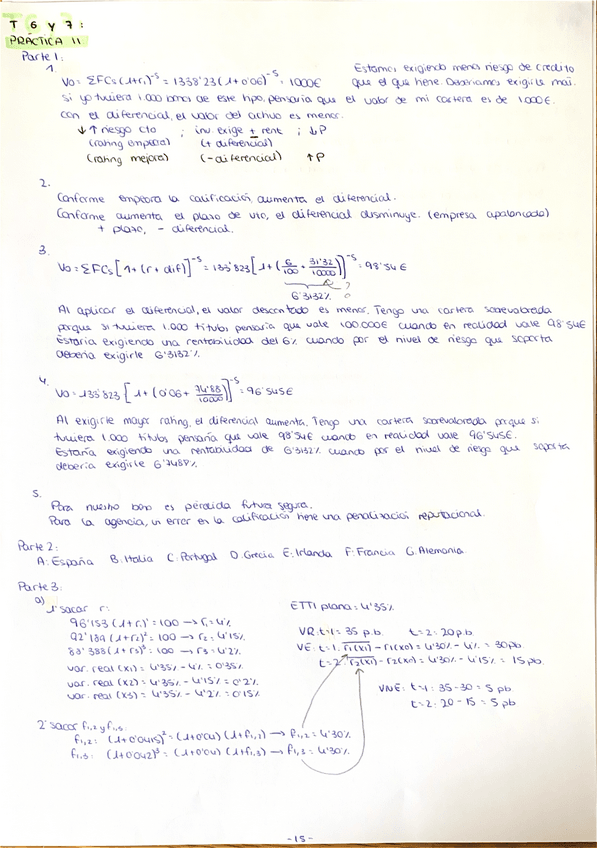 T 6 y 7:
PRÁCTICA 11
Parte 1:
1.
V0 = ΣFCs(1+r1)^-5 = 1338'23(1+0'06)^-5 = 1000€
Estamos exigiendo menos riesgo de credito
que el que tiene. Deberíamos exigirle más.
Si yo tuviera 1.000 bonos de este tipo, pensaría que el valor de mi cartera es de 1.000€.
con el diferencial, el valor del activo es menor.
↓↑ riesgo cto ; inv. exige + rent ; ↓P
(rating empeora) (+ diferencial)
(rating mejora) (- diferencial) ↑P
2.
Conforme empeora la calificación, aumenta el diferencial.
Conforme aumenta el plazo de vto, el diferencial disminuye. (empresa apalancada)
+ plazo, - diferencial.
3.
V0 = ΣFCs[1+(r+dif)]^-5 = 133'823[1+(6/100 + 31'32/10000)]^-5 = 98'54€
6'3132% ?
Al aplicar el diferencial, el valor descontado es menor. Tengo una cartera sobrevalorada
porque si tuviera 1.000 títulos pensaría que vale 100.000€ cuando en realidad vale 98'54€
Estaría exigiendo una rentabilidad del 6% cuando por el nivel de riesgo que soporta
debería exigirle 6'3132%
4.
V0 = 133'823[1+(0'06 + 74'88/10000)]^-5 = 96'545€
Al exigirle mayor rating, el diferencial aumenta. Tengo una cartera sobrevalorada porque si
tuviera 1.000 títulos pensaría que vale 98'54€ cuando en realidad vale 96'545€.
Estaría exigiendo una rentabilidad de 6'3132% cuando por el nivel de riesgo que soporta
debería exigirle 6'7488%
5.
Para nuestro bono es pérdida futura segura.
Para la agencia, un error en la calificación tiene una penalización reputacional.
Parte 2:
A: España B: Italia C: Portugal D: Grecia E: Irlanda F: Francia G: Alemania
Parte 3:
a)
1º sacar r:
96'153(1+r1)^1 = 100 → r1 = 4%
92'189(1+r2)^2 = 100 → r2 = 4'15%
88'388(1+r3)^3 = 100 → r3 = 4'2%
var. real (x1) = 4'35% - 4% = 0'35%
var. real (x2) = 4'35% - 4'15% = 0'2%
var. real (x3) = 4'35% - 4'2% = 0'15%
ETTI plana = 4'35%
VR: t=1 = 35 p.b. t=2 = 20 p.b.
VE: t=1: r1(x1) - r1(x0) = 4'30% - 4% = 30 pb.
t=2: r2(x1) - r2(x0) = 4'30% - 4'15% = 15 pb.
VNE: t=1: 35-30 = 5 pb
t=2: 20-15 = 5 pb
2º sacar f1,2 y f1,3
f1,2: (1+0'0415)^2 = (1+0'04)(1+f1,1) → f1,2 = 4'30%
f1,3: (1+0'042)^3 = (1+0'04)(1+f1,3) → f1,3 = 4'30%
-15-